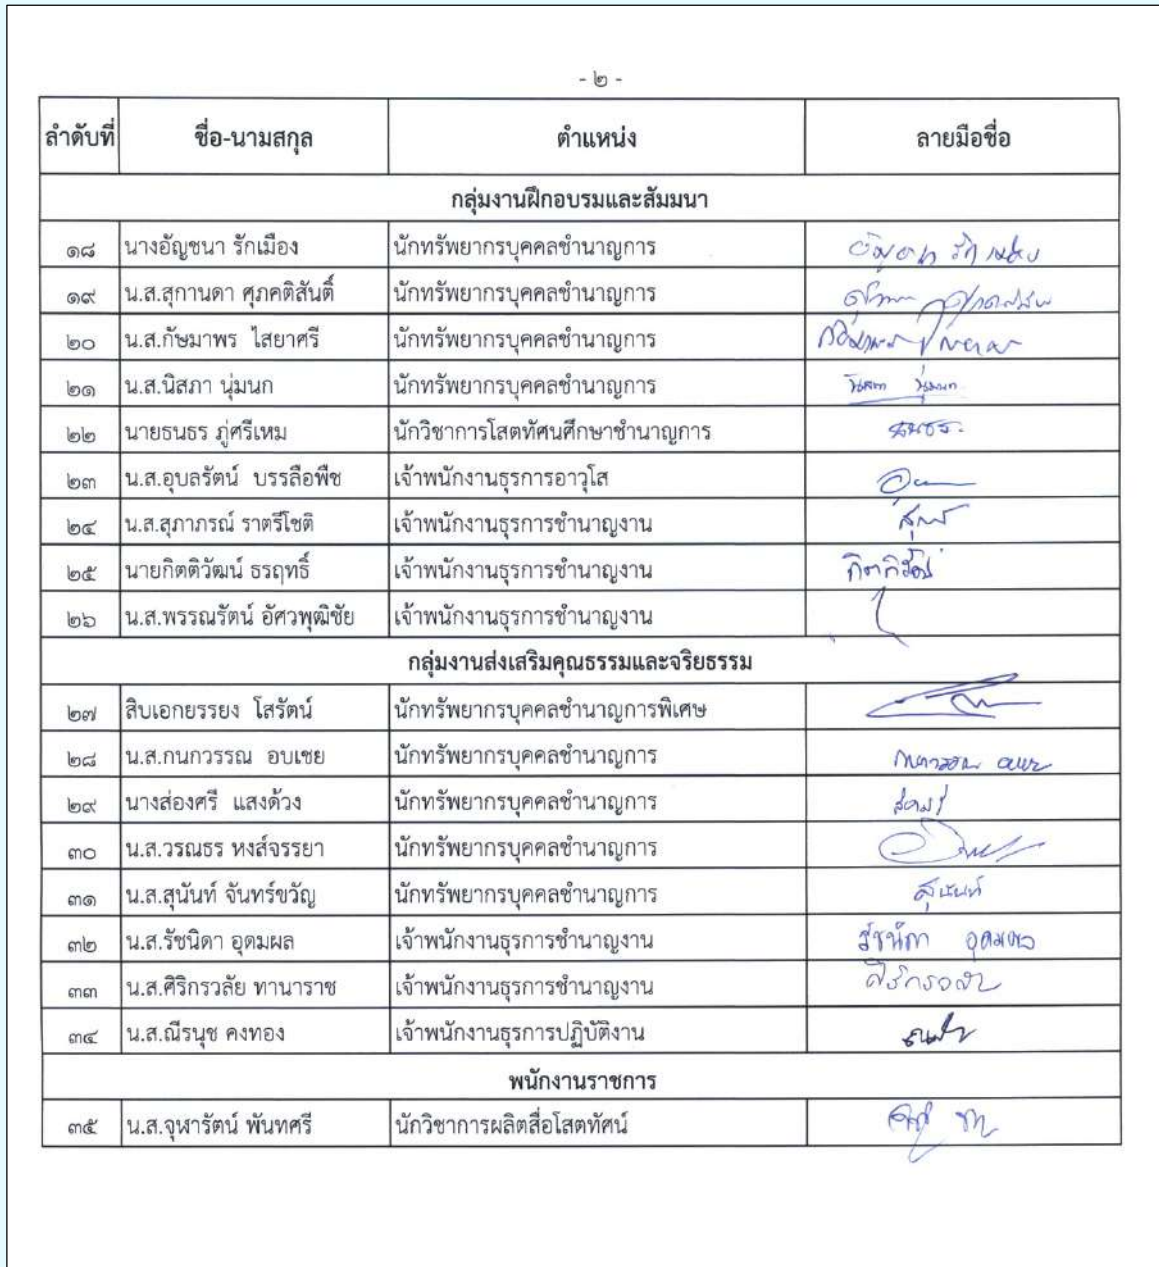 - ๒ -
ลำดับที่ ชื่อ-นามสกุล ตำแหน่ง ลายมือชื่อ
กลุ่มงานฝึกอบรมและสัมมนา
๑๘ นางอัญชนา รักเมือง นักทรัพยากรบุคคลชำนาญการ อัญชนา รักเมือง
๑๙ น.ส.สุกานดา ศุภคติสันติ์ นักทรัพยากรบุคคลชำนาญการ
๒๐ น.ส.กัษมาพร ไสยาศรี นักทรัพยากรบุคคลชำนาญการ
๒๑ น.ส.นิสภา นุ่มนก นักทรัพยากรบุคคลชำนาญการ นิสภา นุ่มนก
๒๒ นายธนธร ภู่ศรีเหม นักวิชาการโสตทัศนศึกษาชำนาญการ ธนธร
๒๓ น.ส.อุบลรัตน์ บรรลือพืช เจ้าพนักงานธุรการอาวุโส
๒๔ น.ส.สุภาภรณ์ ราตรีโชติ เจ้าพนักงานธุรการชำนาญงาน
๒๕ นายกิตติวัฒน์ ธรฤทธิ์ เจ้าพนักงานธุรการชำนาญงาน กิตติวัฒน์
๒๖ น.ส.พรรณรัตน์ อัศวพุฒิชัย เจ้าพนักงานธุรการชำนาญงาน
กลุ่มงานส่งเสริมคุณธรรมและจริยธรรม
๒๗ สิบเอกยรรยง โสรัตน์ นักทรัพยากรบุคคลชำนาญการพิเศษ
๒๘ น.ส.กนกวรรณ อบเชย นักทรัพยากรบุคคลชำนาญการ กนกวรรณ อบเชย
๒๙ นางส่องศรี แสงด้วง นักทรัพยากรบุคคลชำนาญการ
๓๐ น.ส.วรณธร หงส์จรรยา นักทรัพยากรบุคคลชำนาญการ
๓๑ น.ส.สุนันท์ จันทร์ขวัญ นักทรัพยากรบุคคลชำนาญการ สุนันท์
๓๒ น.ส.รัชนิดา อุดมผล เจ้าพนักงานธุรการชำนาญงาน รัชนิดา อุดมผล
๓๓ น.ส.ศิริกรวลัย ทานาราช เจ้าพนักงานธุรการชำนาญงาน
๓๔ น.ส.ณีรนุช คงทอง เจ้าพนักงานธุรการปฏิบัติงาน
พนักงานราชการ
๓๕ น.ส.จุฬารัตน์ พันทศรี นักวิชาการผลิตสื่อโสตทัศน์